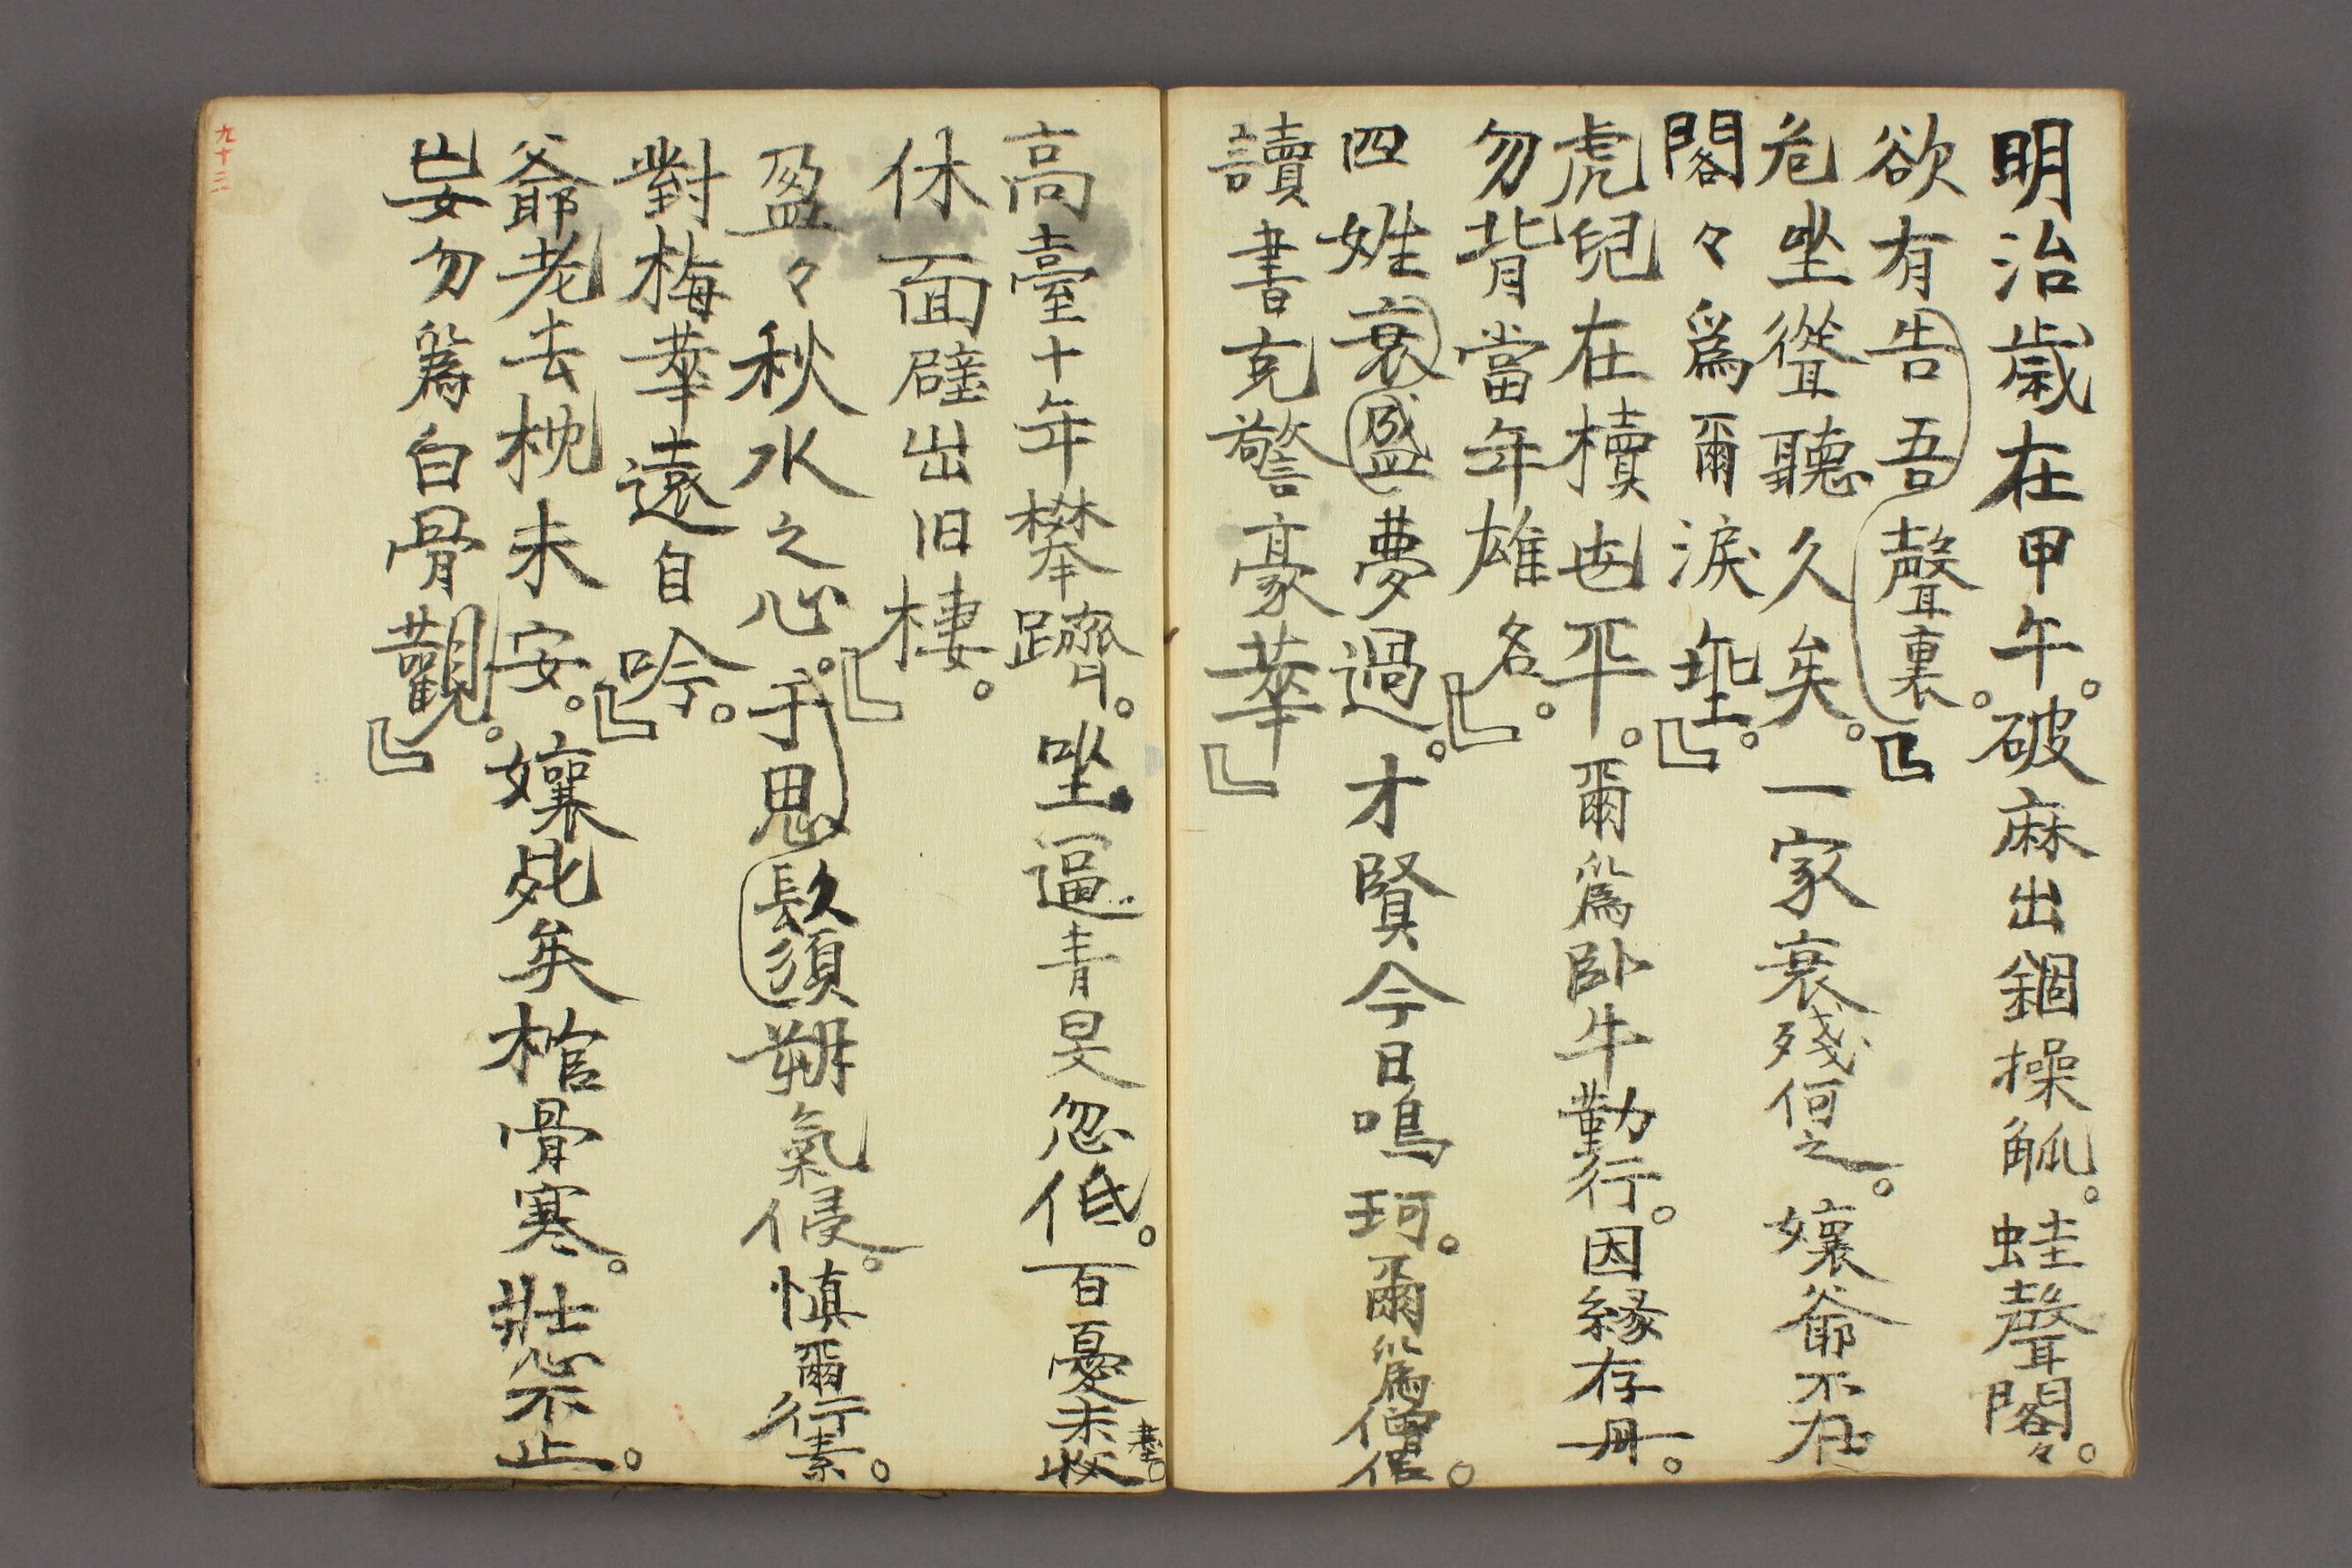 明治歳在甲午。破麻出錮操觚。蛙聲閣々。
欲有告吾聲裏。』
危坐聳聽久矣。一家衰殘何之。孃爺不在
閣々爲爾淚垂。』
虎兒在櫝也平。爾爲臥牛勤行。因縁存毋。
勿背當年雄名。』
四姓衰盛夢過。才賢今日鳴珂。爾爲僧侶。
讀書克警豪華』
高臺十年攀躋。坐逼青旻忽低。百憂未收書筌。
休面壁出旧棲。』
盈々秋水之心。于思鬚須朔氣侵。慎爾行素。
對梅華遠自吟。』
爺老去枕未安。孃死矣棺骨寒。壯心不止。
妄勿爲白骨觀。』
九十二